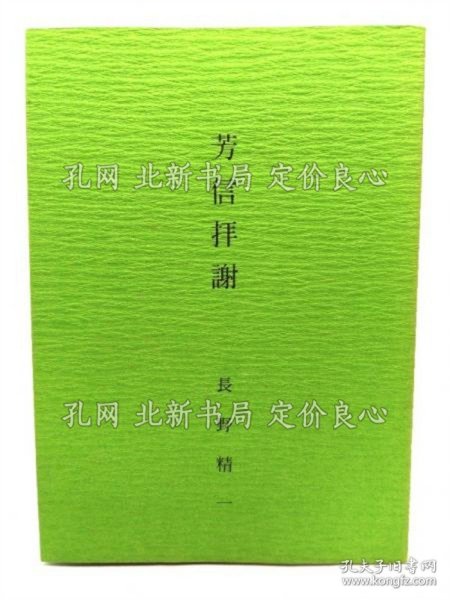 芳信拝謝
長野精一
孔网 北新书局 定价良心
孔网 北新书局 定价良心
孔网 北新书局 定价良心
孔夫子旧书网
www.kongfz.com